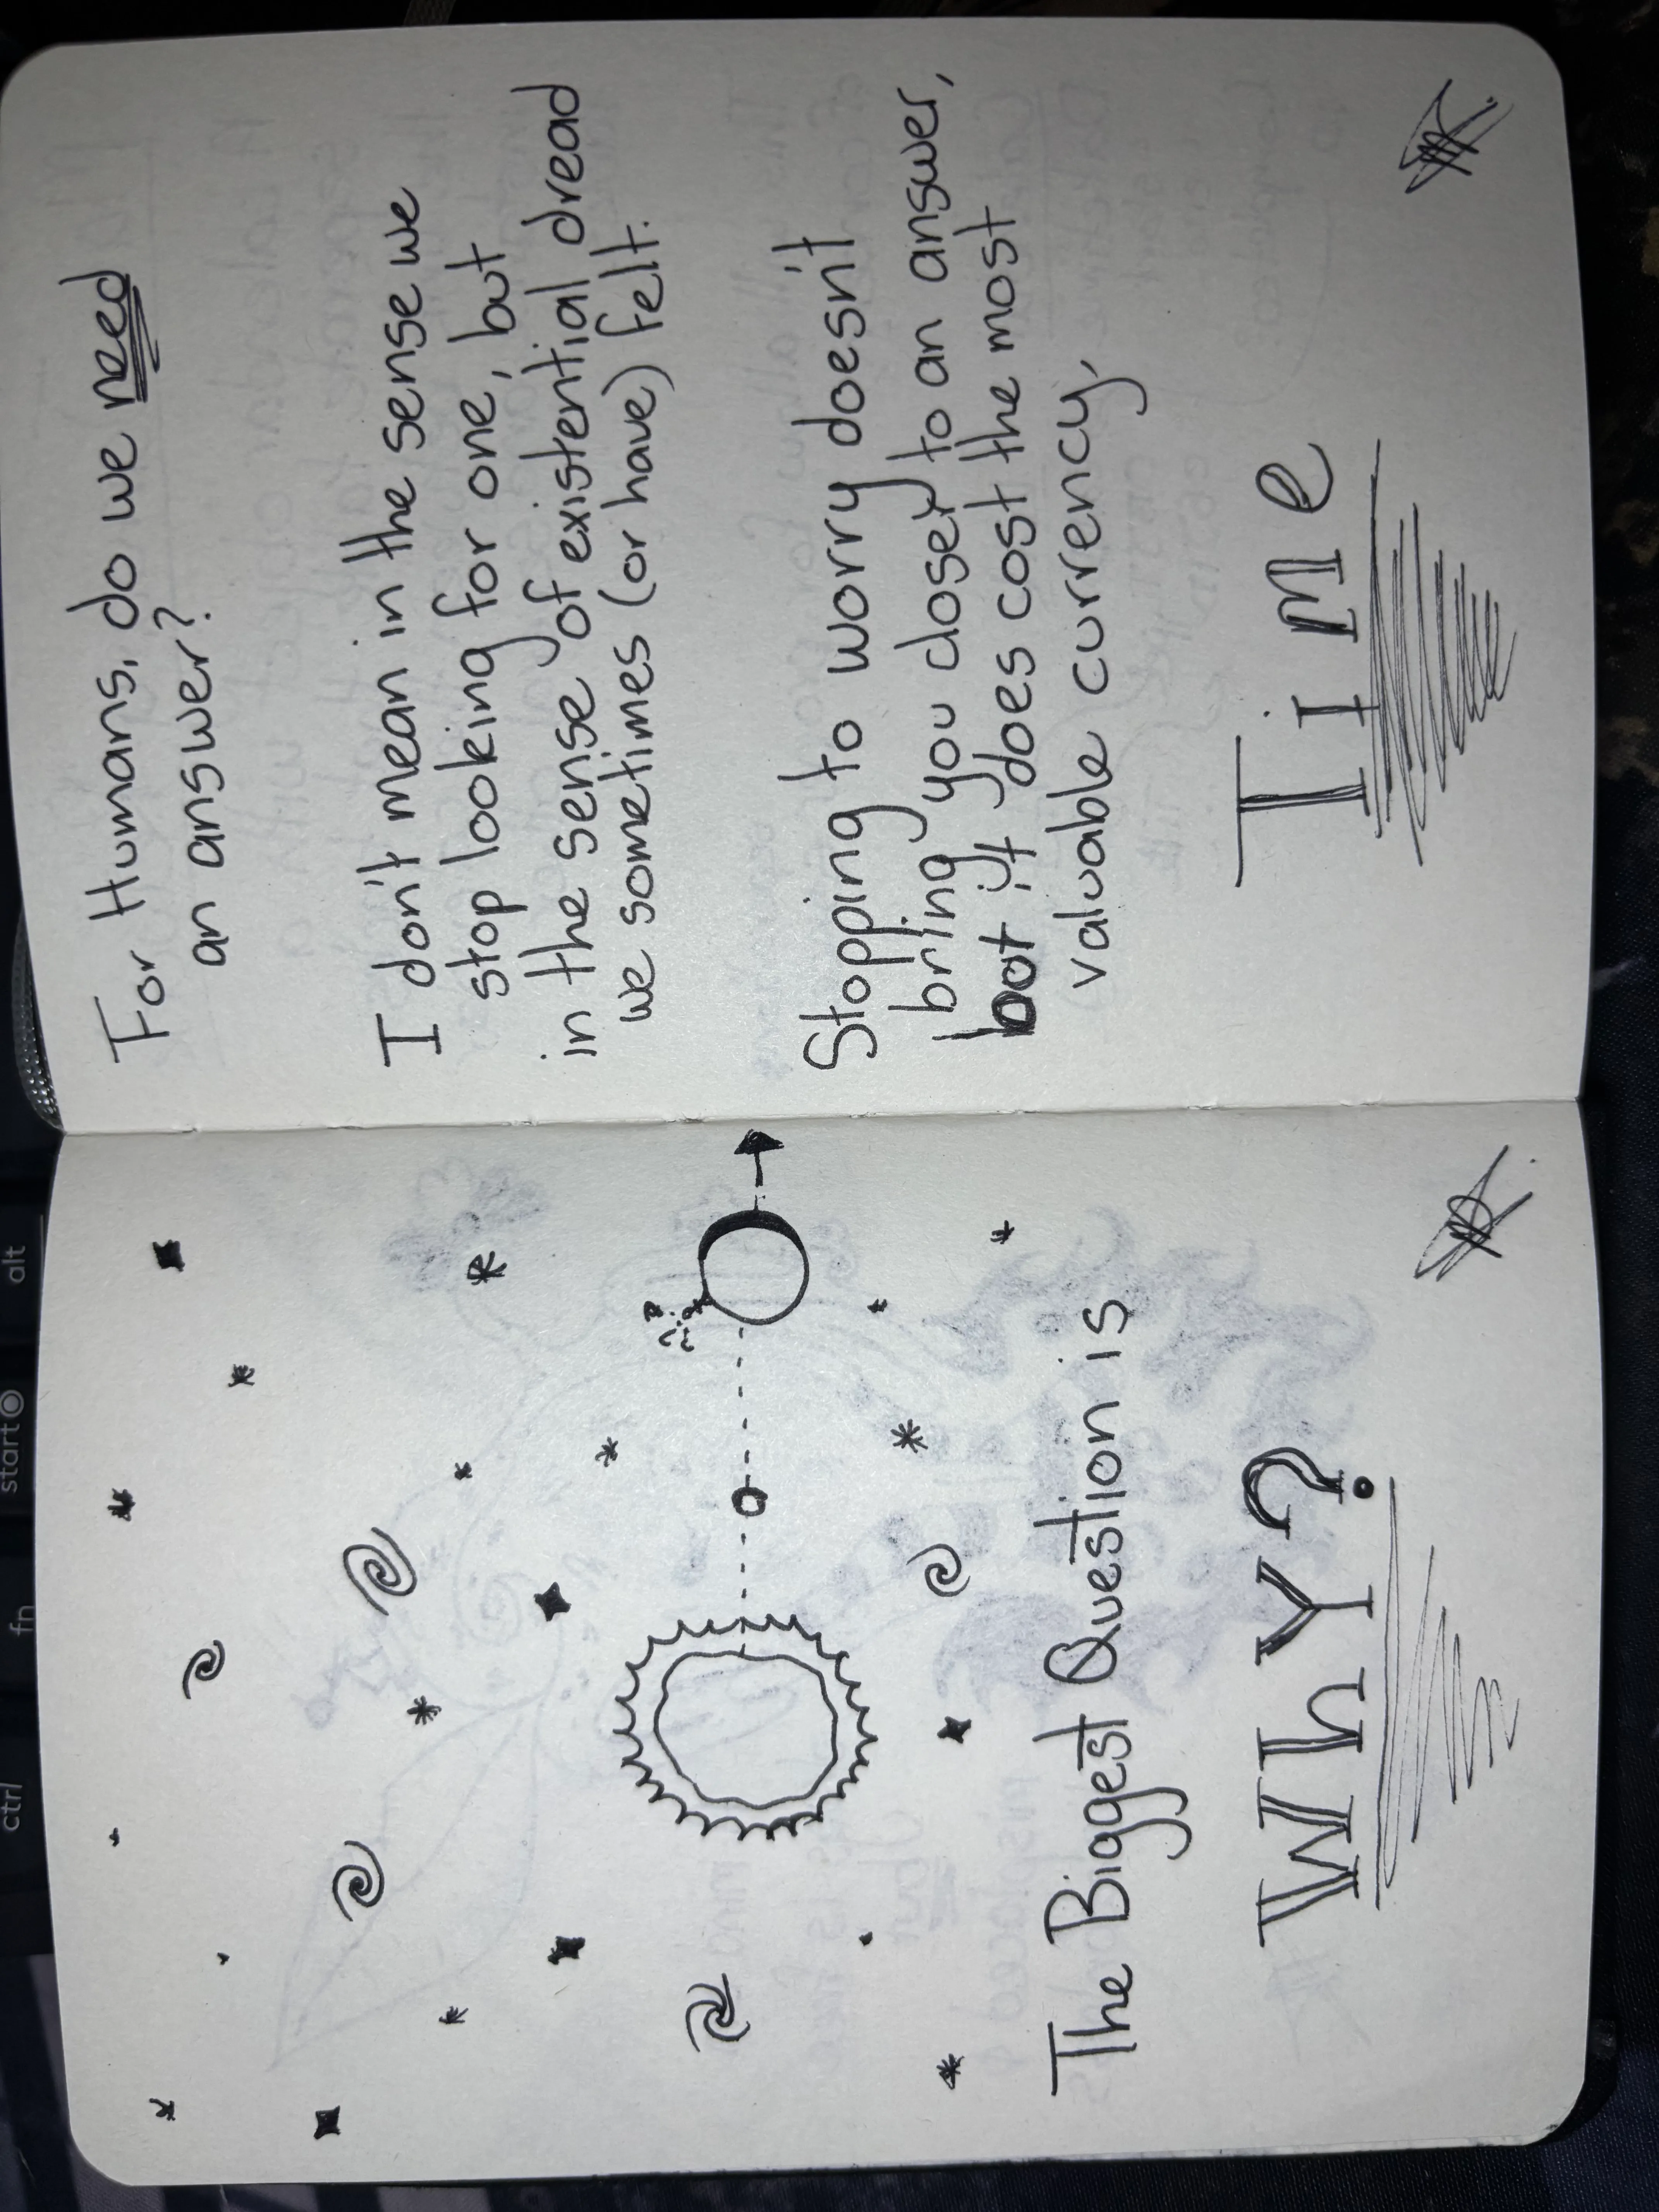 The Biggest Question is
Why?
For Humans, do we need
an answer?
I don't mean in the sense we
stop looking for one, but
in the sense of existential dread
we sometimes (or have) felt.
Stopping to worry doesn't
bring you closer to an answer,
but it does cost the most
valuable currency,
Time
ctrl
fn
start
alt